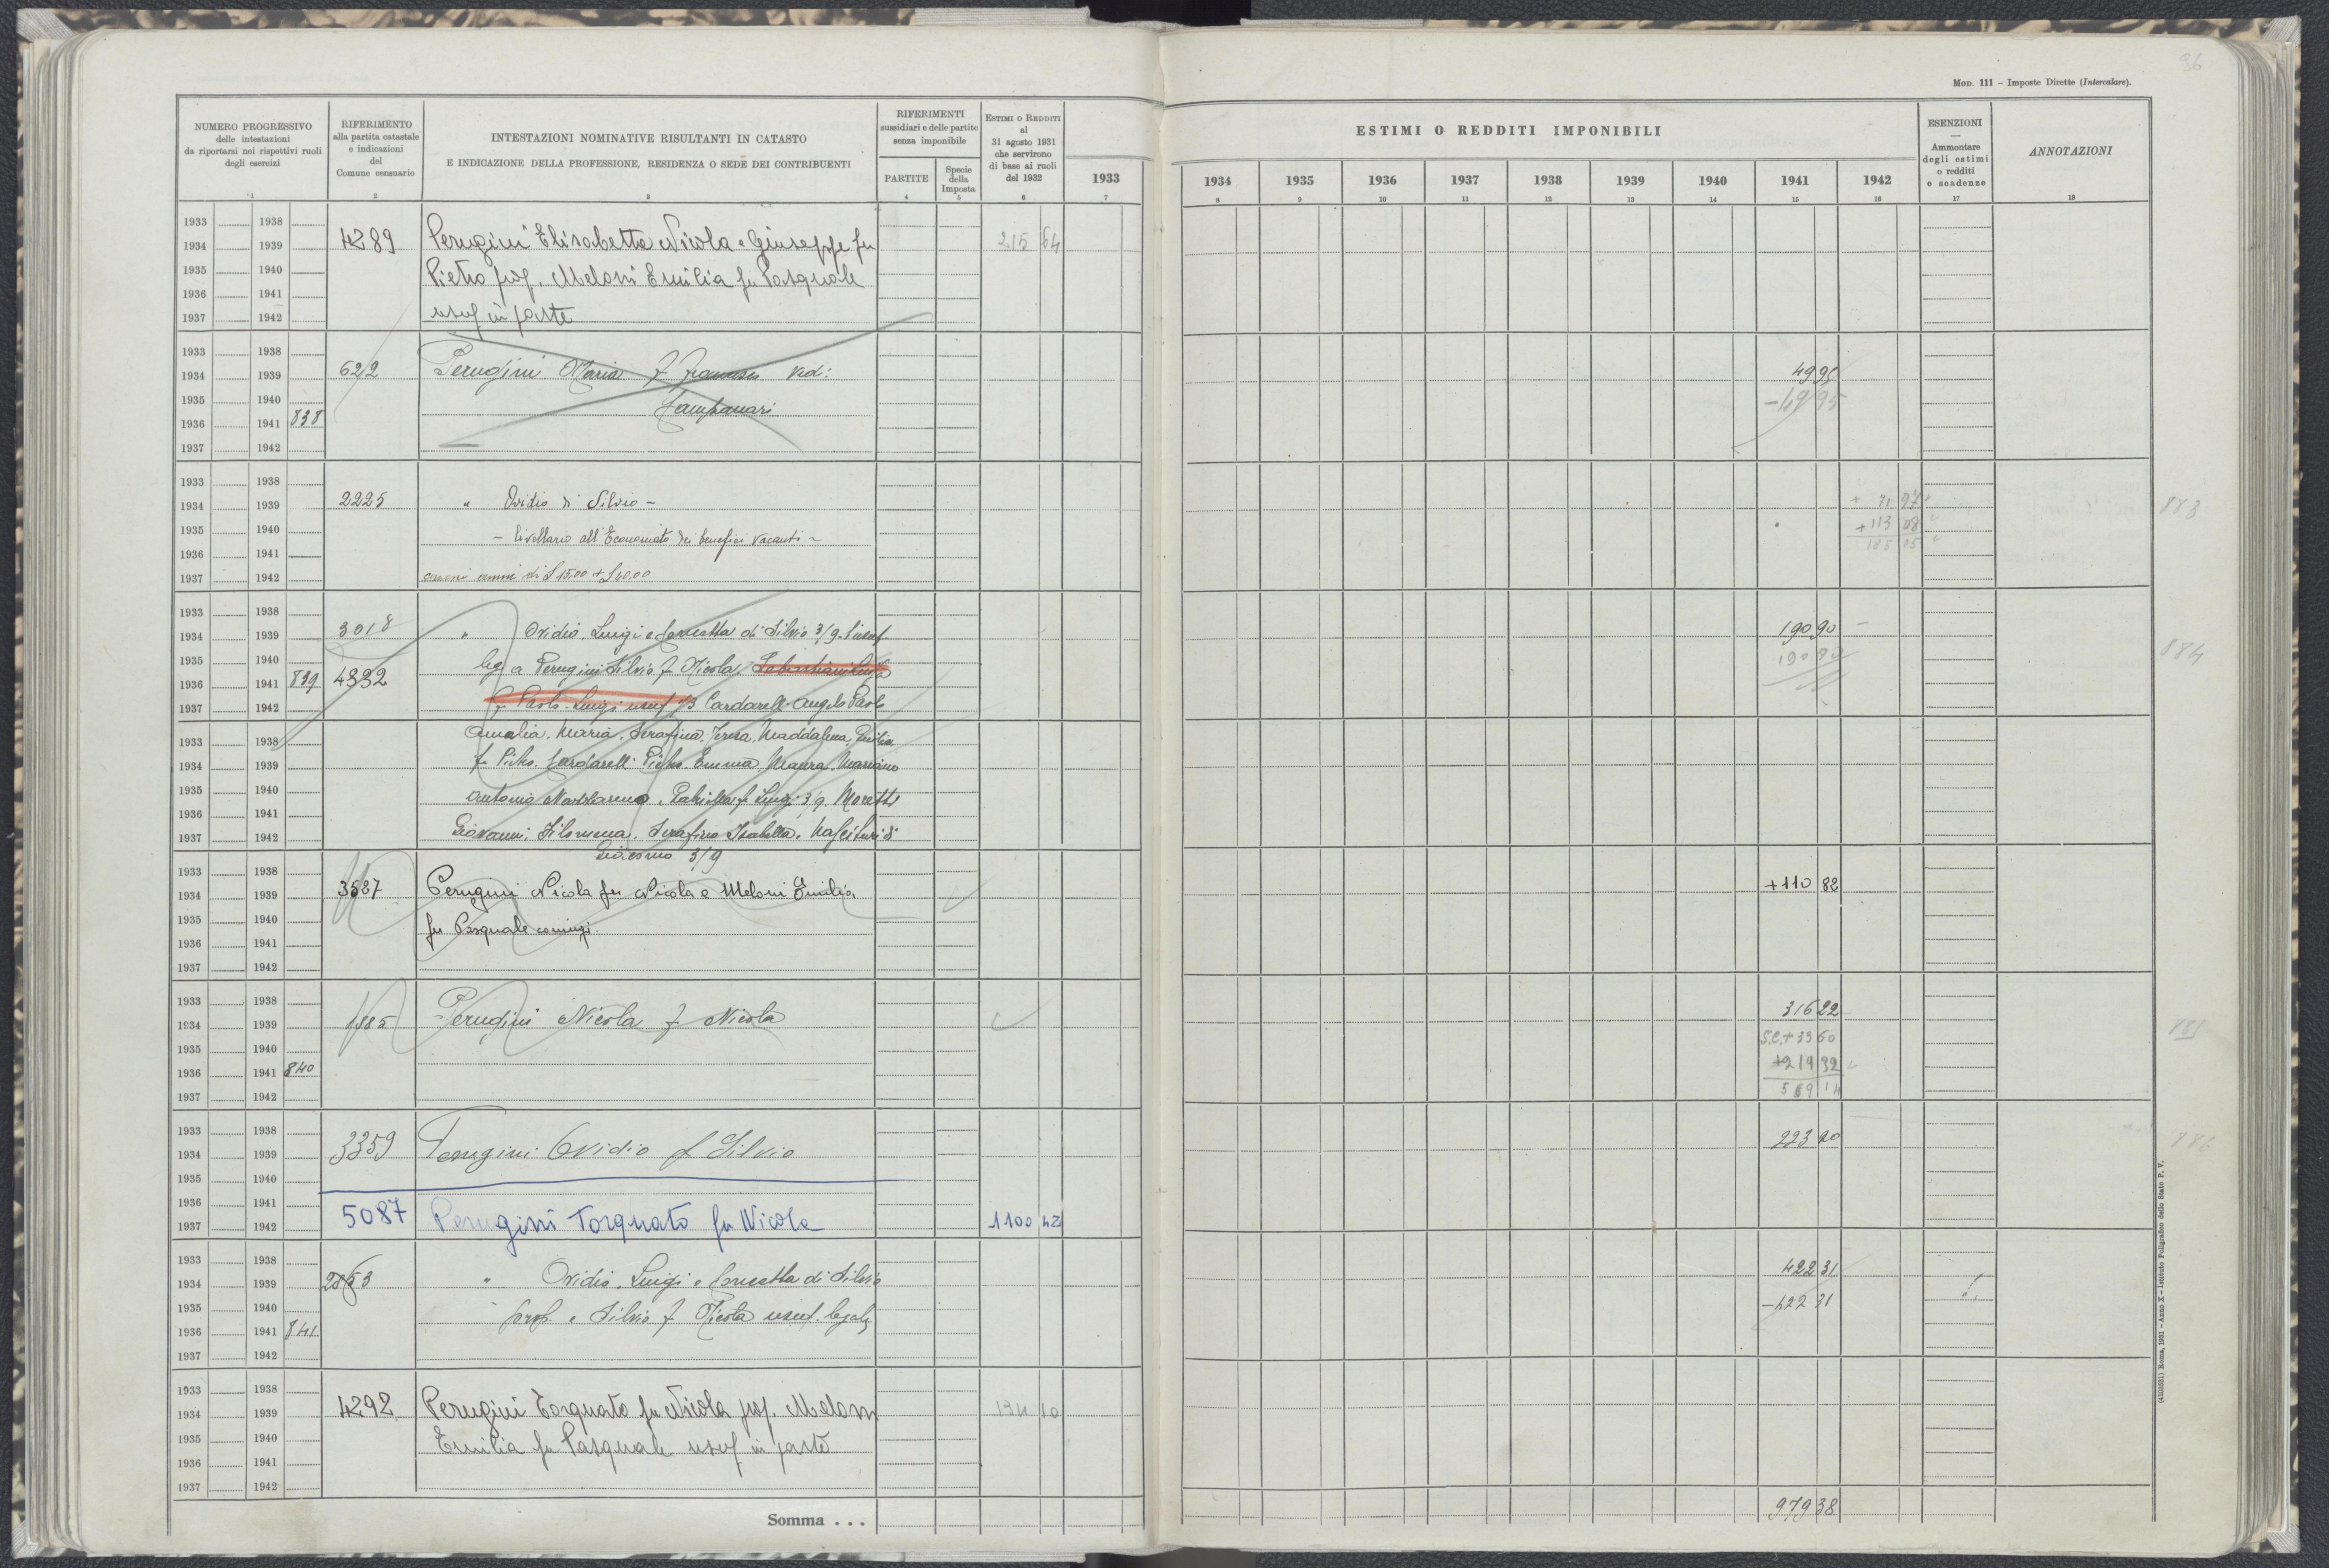 96
Mod. 111 – Imposte Dirette (Intercalare).
NUMERO PROGRESSIVO
delle intestazioni
da riportarsi nei rispettivi ruoli
degli esercizi
1
RIFERIMENTO
alla partita catastale
e indicazioni
del
Comune censuario
2
INTESTAZIONI NOMINATIVE RISULTANTI IN CATASTO
E INDICAZIONE DELLA PROFESSIONE, RESIDENZA O SEDE DEI CONTRIBUENTI
3
RIFERIMENTI
sussidiari e delle partite
senza imponibile
PARTITE
4
Specie
della
Imposta
5
Estimi o Redditi
al
31 agosto 1931
che servirono
di base ai ruoli
del 1932
6
1933
7
ESTIMI O REDDITI IMPONIBILI
1934 1935 1936 1937 1938 1939 1940 1941 1942
8 9 10 11 12 13 14 15 16
ESENZIONI
—
Ammontare
degli estimi
o redditi
e scadenze
17
ANNOTAZIONI
18
1933 1938
1934 1939 4289 Perugini Elisabetta Nicola e Giuseppe fu 215 64
1935 1940 Pietro prop. Meloni Emilia fu Pasquale
1936 1941
1937 1942 usuf in parte
1933 1938
1934 1939 622 Perugini Maria f Francesco Ved: 49 95
1935 1940 Campanari -49 95
1936 1941 838
1937 1942
1933 1938
1934 1939 2225 " Ovidio di Silvio – + 71 97 883
1935 1940 – livellario all'Economato dei benefici vacanti – +113 08
1936 1941 185 05
1937 1942 canoni annui di £ 15.00 + £ 40.00
1933 1938
1934 1939 3018 " Ovidio, Luigi e Concetta di Silvio 3/9. 190 90 –
1935 1940 leg a Perugini Silvio f Nicola, 190 90 884
1936 1941 839 4332
1937 1942 f Paolo. Luigi usuf 1/3 Cardarelli Angelo Paolo
1933 1938 Amalia, Maria, Serafina, Teresa, Maddalena,
1934 1939 f Pietro. Cardarelli Pietro. Emma, Maura, Mariano
1935 1940 Antonio Nazzareno, f Luigi 3/9. Moretti
1936 1941
1937 1942 Giovanni, Filomena, Serafino Isabella,
Giacomo 3/9
1933 1938
1934 1939 3587 Perugini Nicola fu Nicola e Meloni Emilia +110 82
1935 1940 fu Pasquale coniugi.
1936 1941
1937 1942
1933 1938
1934 1939 1885 Perugini Nicola f Nicola 316 22
1935 1940 S.C. + 33 60 885
1936 1941 840 +219 32
1937 1942 569 14
1933 1938
1934 1939 3359 Perugini Ovidio f Silvio 223 20 886
1935 1940
1936 1941
1937 1942 5087 Perugini Torquato fu Nicola 1100 42
1933 1938
1934 1939 2863 " Ovidio, Luigi e Concetta di Silvio 422 31
1935 1940 prop. e Silvio f Nicola usuf. legale -422 31
1936 1941 841
1937 1942
1933 1938
1934 1939 4292 Perugini Torquato fu Nicola prop. Meloni 134 10
1935 1940 Emilia fu Pasquale usuf in parte
1936 1941
1937 1942
Somma . . . 979 38
(4103551) Roma, 1931 – Anno X – Istituto Poligrafico dello Stato P. V.